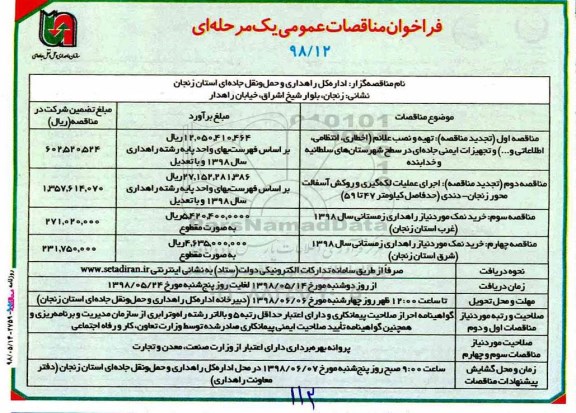 فراخوان مناقصات عمومی یک مرحله‌ای
۹۸/۱۲
سازمان راهداری و حمل و نقل جاده‌ای
نام مناقصه‌گزار: اداره کل راهداری و حمل‌ونقل جاده‌ای استان زنجان
نشانی: زنجان، بلوار شیخ اشراق، خیابان راهدار
موضوع مناقصات
مبلغ برآورد
مبلغ تضمین شرکت در
مناقصه(ریال)
مناقصه اول (تجدید مناقصه): تهیه و نصب علائم (اخطاری، انتظامی،
اطلاعاتی و...) و تجهیزات ایمنی جاده‌ای در سطح شهرستان‌های سلطانیه
و خدابنده
۱۲,۰۵۰,۴۱۰,۴۶۴ریال
بر اساس فهرست‌بهای واحد پایه رشته راهداری
سال ۱۳۹۸ و با تعدیل
۶۰۲,۵۲۰,۵۲۴
مناقصه دوم (تجدید مناقصه): اجرای عملیات لکه‌گیری و روکش آسفالت
محور زنجان- دندی (حدفاصل کیلومتر ۴۷ تا ۵۹)
۲۷,۱۵۲,۲۸۱,۳۸۶ریال
بر اساس فهرست‌بهای واحد پایه رشته راهداری
سال ۱۳۹۸ و با تعدیل
۱,۳۵۷,۶۱۴,۰۷۰
مناقصه سوم: خرید نمک موردنیاز راهداری زمستانی سال ۱۳۹۸
(غرب استان زنجان)
۵,۴۲۰,۴۰۰,۰۰۰ریال
به صورت مقطوع
۲۷۱,۰۲۰,۰۰۰
مناقصه چهارم: خرید نمک موردنیاز راهداری زمستانی سال ۱۳۹۸
(شرق استان زنجان)
۴,۶۳۵,۰۰۰,۰۰۰ریال
به صورت مقطوع
۲۳۱,۷۵۰,۰۰۰
نحوه دریافت
صرفا از طریق سامانه تدارکات الکترونیکی دولت(ستاد) به نشانی اینترنتی www.setadiran.ir
زمان دریافت
از روز دوشنبه مورخ ۱۳۹۸/۰۵/۱۴ لغایت روز پنج‌شنبه مورخ ۱۳۹۸/۰۵/۲۴
مهلت و محل تحویل
تا ساعت ۱۲:۰۰ ظهر روز چهارشنبه مورخ ۱۳۹۸/۰۶/۰۶ (دبیرخانه اداره کل راهداری و حمل‌ونقل جاده‌ای استان زنجان)
صلاحیت و رتبه موردنیاز
مناقصات اول و دوم
گواهینامه احراز صلاحیت پیمانکاری و دارای اعتبار حداقل رتبه ۵ و بالاتر رشته راه و ترابری از سازمان مدیریت و برنامه‌ریزی و
همچنین گواهینامه تأیید صلاحیت ایمنی پیمانکاری صادر شده توسط وزارت تعاون، کار و رفاه اجتماعی
صلاحیت موردنیاز
مناقصات سوم و چهارم
پروانه بهره‌برداری دارای اعتبار از وزارت صنعت، معدن و تجارت
زمان و محل گشایش
پیشنهادات مناقصات
ساعت ۹:۰۰ صبح روز پنج‌شنبه مورخ ۱۳۹۸/۰۶/۰۷ در محل اداره کل راهداری و حمل‌ونقل جاده‌ای استان زنجان (دفتر
معاونت راهداری)
۱۱۲